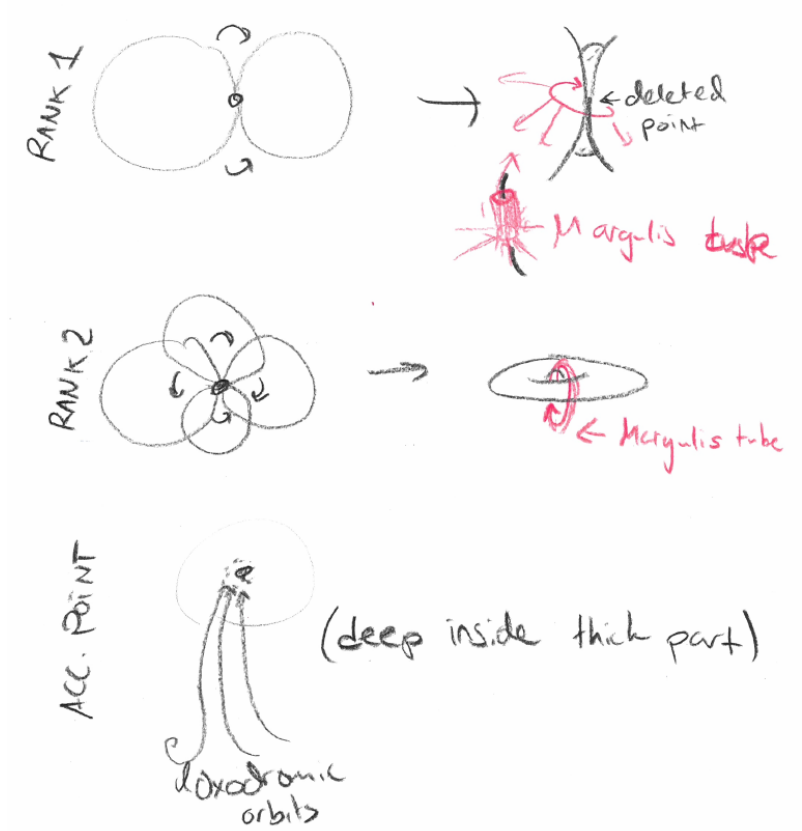 RANK 1
← deleted
point
Margulis tube
RANK 2
← Margulis tube
ACC. POINT
(deep inside thick part)
loxodromic
orbits